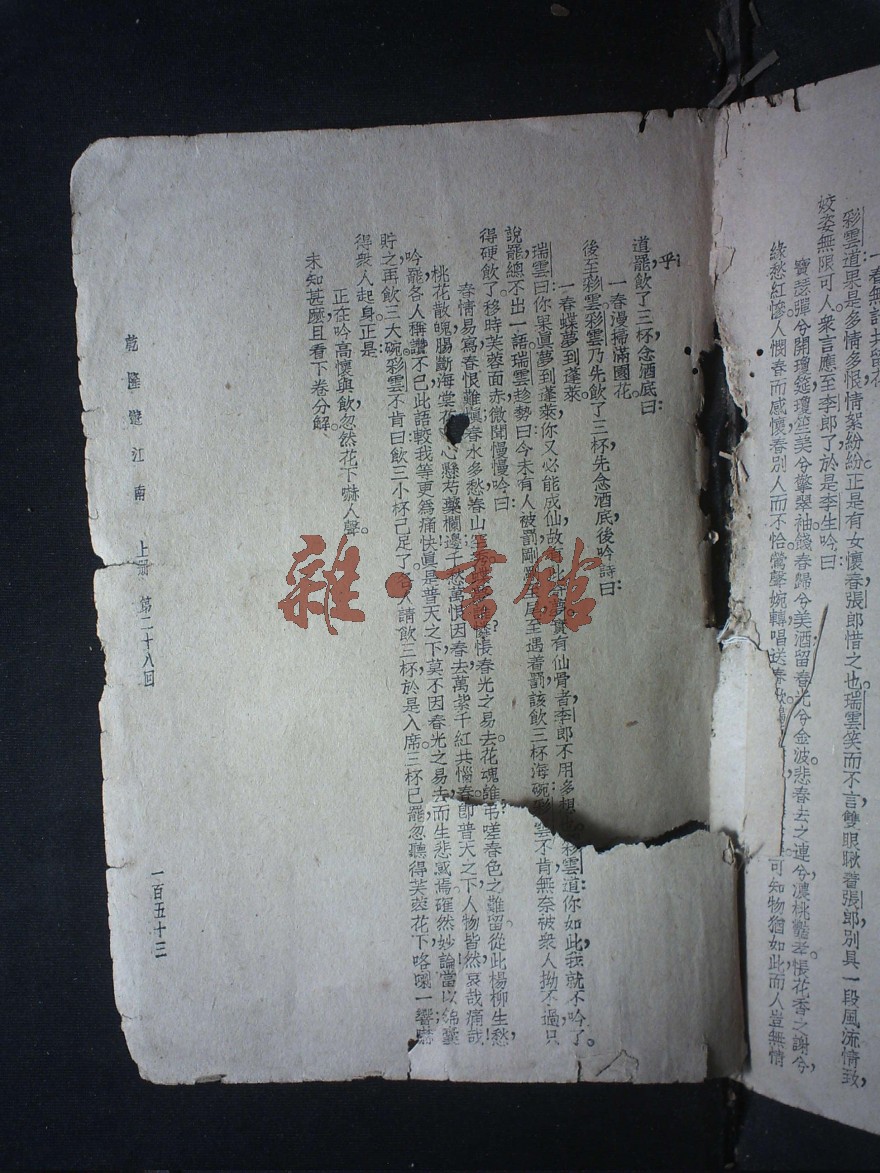 彩雲道果是多情多恨情絮紛紛正是有女懷春張郎惜之也瑞雲笑而不言雙眼瞅着張郎別具一段風流情致,
姣姿無限可人衆言應至李郎了於是李生吟曰
寶瑟彈兮開瓊筵瓊竺美兮擎翠袖錢春歸兮美酒留春光兮金波悲春去之連兮濃桃豔李悵花香之謝兮,
綠愁紅慘人憫春而感懷春別人而不恰鶯聲婉轉唱送春 可知物猶如此而人豈無情
乎,
道罷飲了三杯念酒底曰:
一春漫掃滿園花。
後至彩雲彩雲乃先飲了三杯先念酒底後吟詩曰:
一春蝶夢到蓬萊。
瑞雲曰你果眞夢到蓬萊你又必能成仙故 實有仙骨者李郎不用多想 彩雲道你如此我就不吟了。
說罷總不出一語瑞雲趁勢曰今未有人被罰剛 至遇着罰該飲三杯海碗彩雲不肯無奈被衆人拗不過只
得硬飲了移時芙蓉面赤微聞慢慢吟曰:
春情易寫春恨難慎春水多愁春山 悵春光之易去花魂誰弔嗟春色之難留從此楊柳生愁,
桃花散魄腸斷海棠花 心懸芍藥欄邊千愁萬恨因春去萬紫千紅共惱春卽普天之下人物皆然哀哉痛哉
吟罷各人稱讚不已此語較我等更爲痛快眞是普天之下莫不因春光之易去而生悲感焉確然妙論當以綿囊
貯之再飲三大碗彩雲不肯曰飲三小杯已足了 人請飲三杯於是入席三杯已罷忽聽得芙蓉花下咯喇一響嚇
得衆人起身正是
正在吟高懷與飲忽然花下嚇人聲。
未知甚麼且看下卷分解。
乾隆遊江南 上册 第二十八回 一百五十三
雜·書館